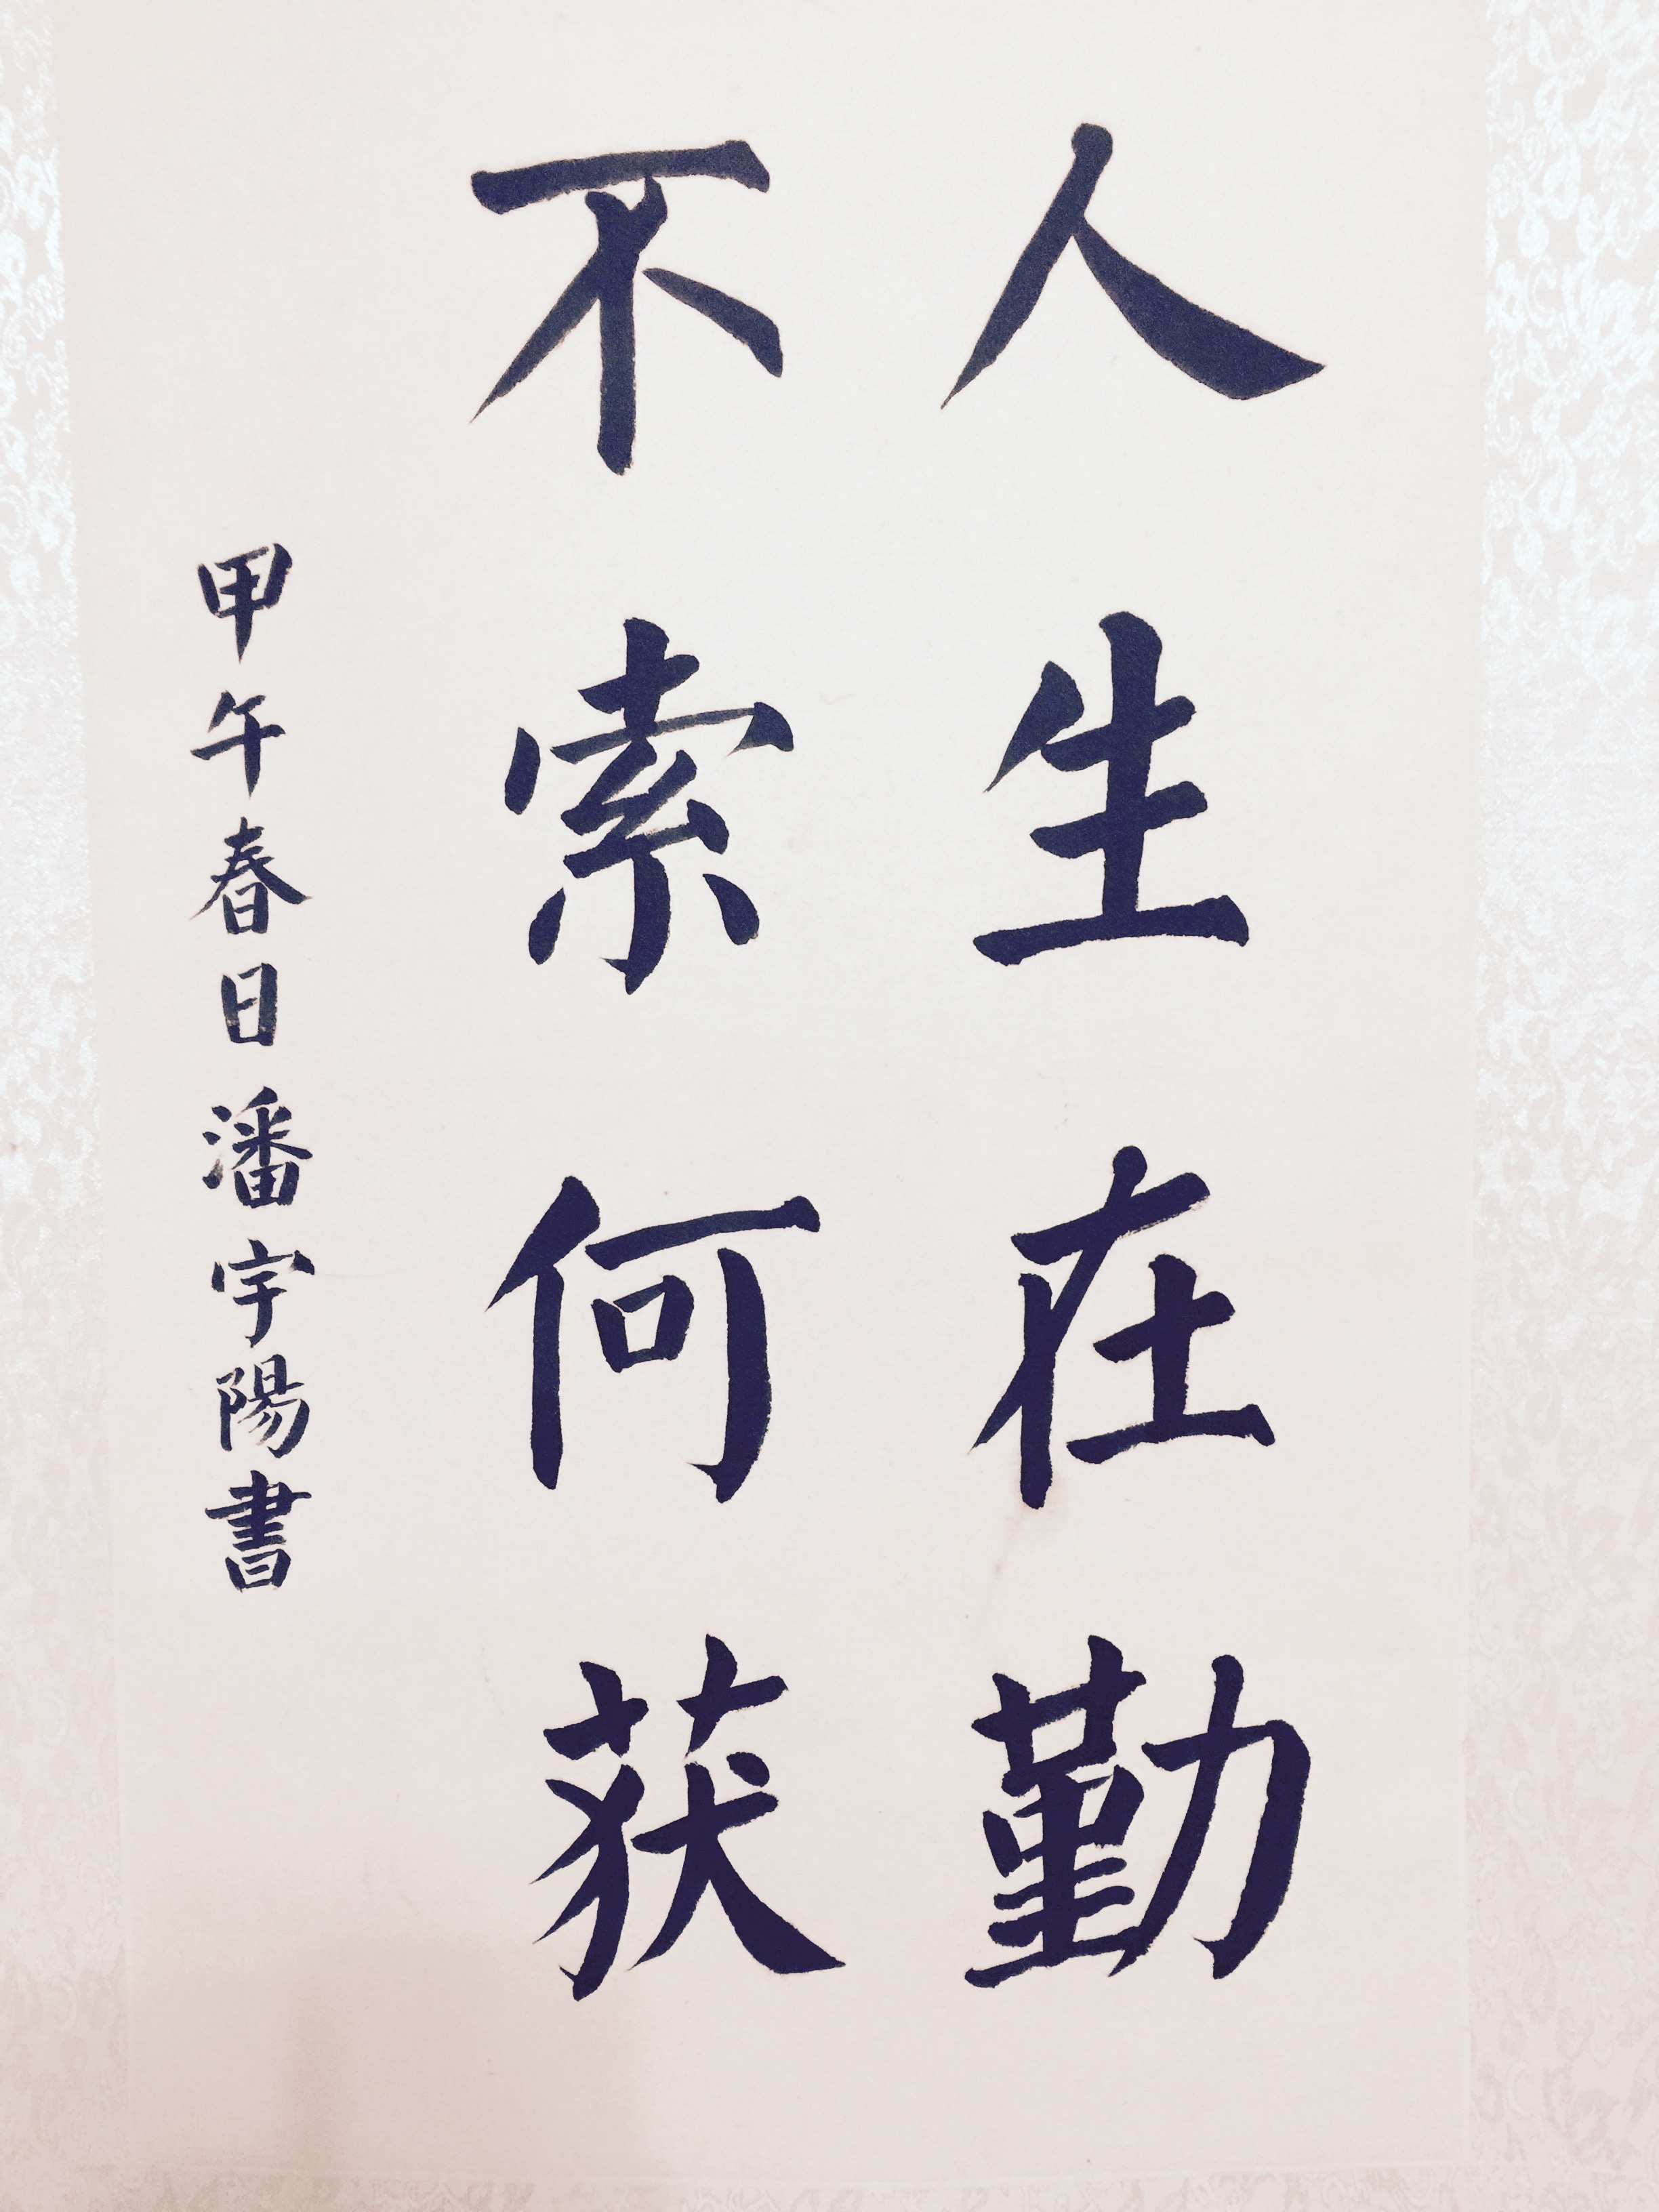 人生在勤
不索何获
甲午春日潘宇陽書